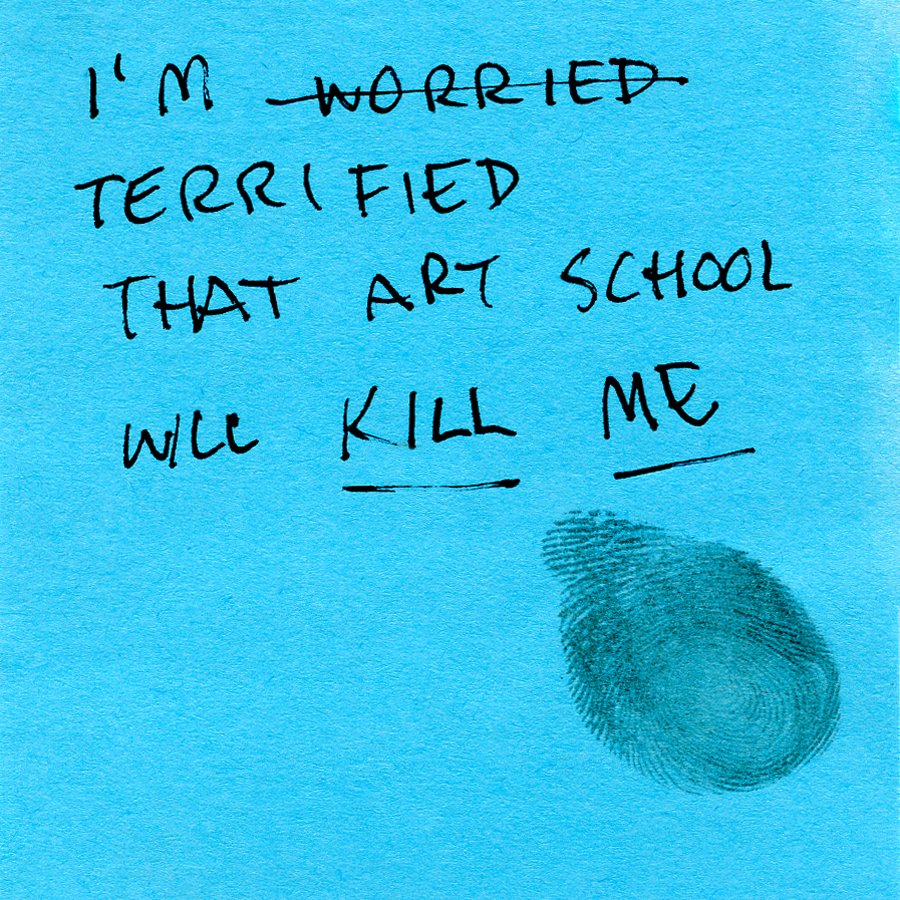 I'M ~~WORRIED~~
TERRIFIED
THAT ART SCHOOL
WILL KILL ME